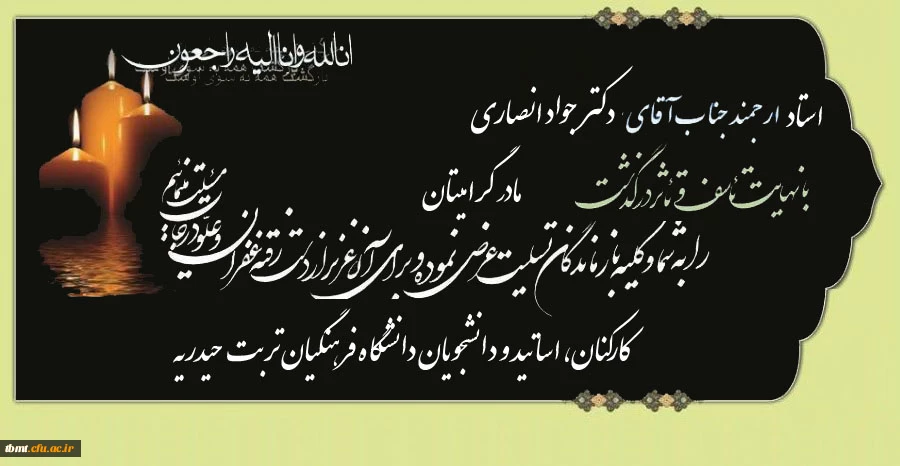 انا لله و انا الیه راجعون
بازگشت همه به سوی اوست
استاد ارجمند جناب آقای دکتر جواد انصاری
با نهایت تاسف و تاثر درگذشت مادر گرامیتان
را به شما و کلیه بازماندگان تسلیت عرض نموده و برای آن عزیز از دست رفته غفران و علو درجات مسئلت مینمائیم
کارکنان، اساتید و دانشجویان دانشگاه فرهنگیان تربت حیدریه
tbmt.cfu.ac.ir